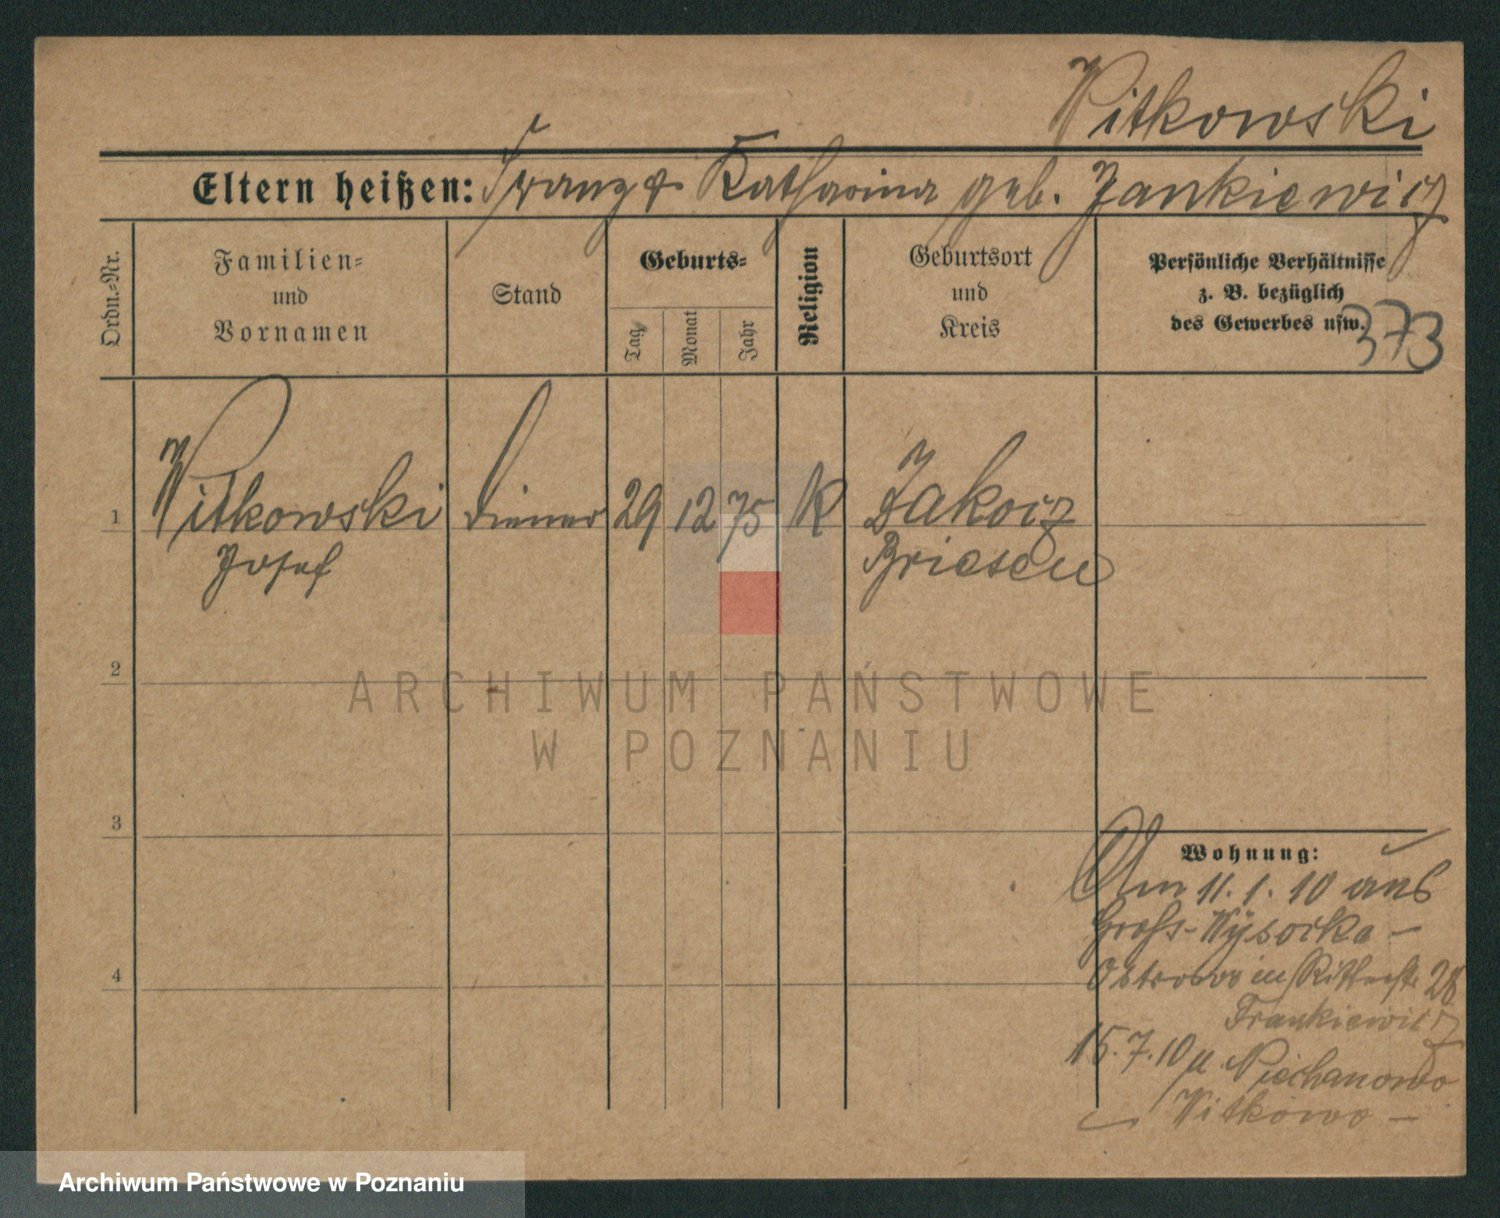 Witkowski
Eltern heißen: Franz & Katharina geb. Jankiewicz
Ordn.-Nr.
Familien-
und
Vornamen
Stand
Geburts-
Tag
Monat
Jahr
Religion
Geburtsort
und
Kreis
Persönliche Verhältnisse
z. B. bezüglich
des Gewerbes usw.
373
1
Witkowski Diener 29 12 75 K
Josef
Briesen
2
ARCHIWUM PAŃSTWOWE
W POZNANIU
3
Wohnung:
Am 11. 1. 10 aus
Groß-Wysocka -
Ostrowo in Ritterstr 28
Frankiewicz
4
15.7.10 n Niechanowo
Witkowo -
Archiwum Państwowe w Poznaniu